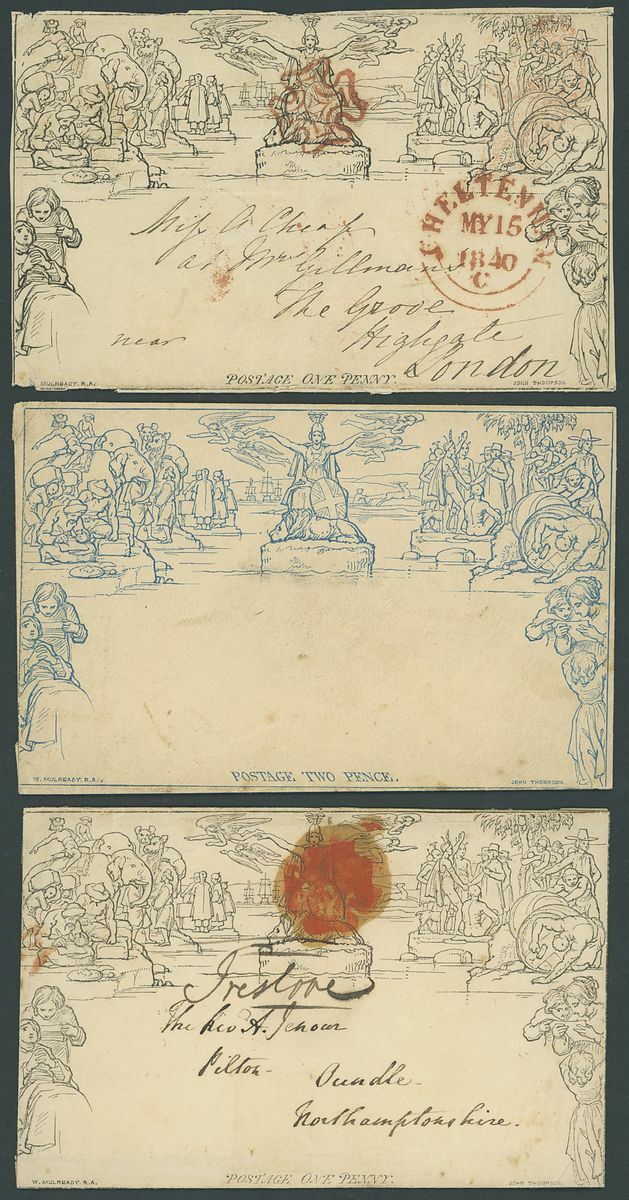 CHELTENHAM
MY 15
1840
C
Miss Cheap
at Mrs Gillmans
The Grove
Highgate
near London
MULREADY. R.A.
POSTAGE ONE PENNY.
JOHN THOMPSON.
W. MULREADY. R.A.
POSTAGE TWO PENCE.
JOHN THOMPSON.
The Rev A. Jenour
Pilton
Oundle
Northamptonshire.
W. MULREADY. R.A.
POSTAGE ONE PENNY.
JOHN THOMPSON.